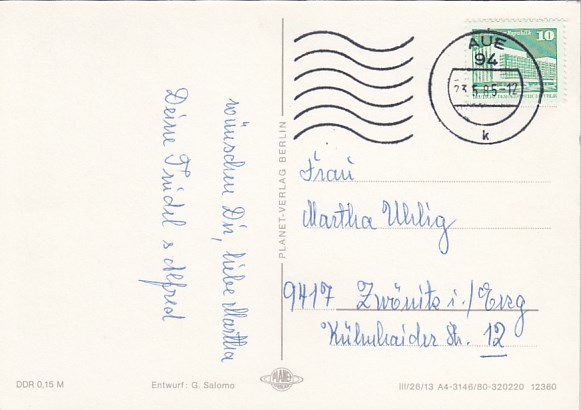 wünschen Dir, liebe Martha
Deine Trudel s Alfred
PLANET-VERLAG BERLIN
Republik 10
AUE
94
23.5.85-12
k
Frau
Martha Uhlig
9417 Zwönitz i./Erzg
Kühnhaider Str. 12
DDR 0,15 M
Entwurf: G. Salomo
PLANET
III/28/13 A4-3146/80-320220 12360